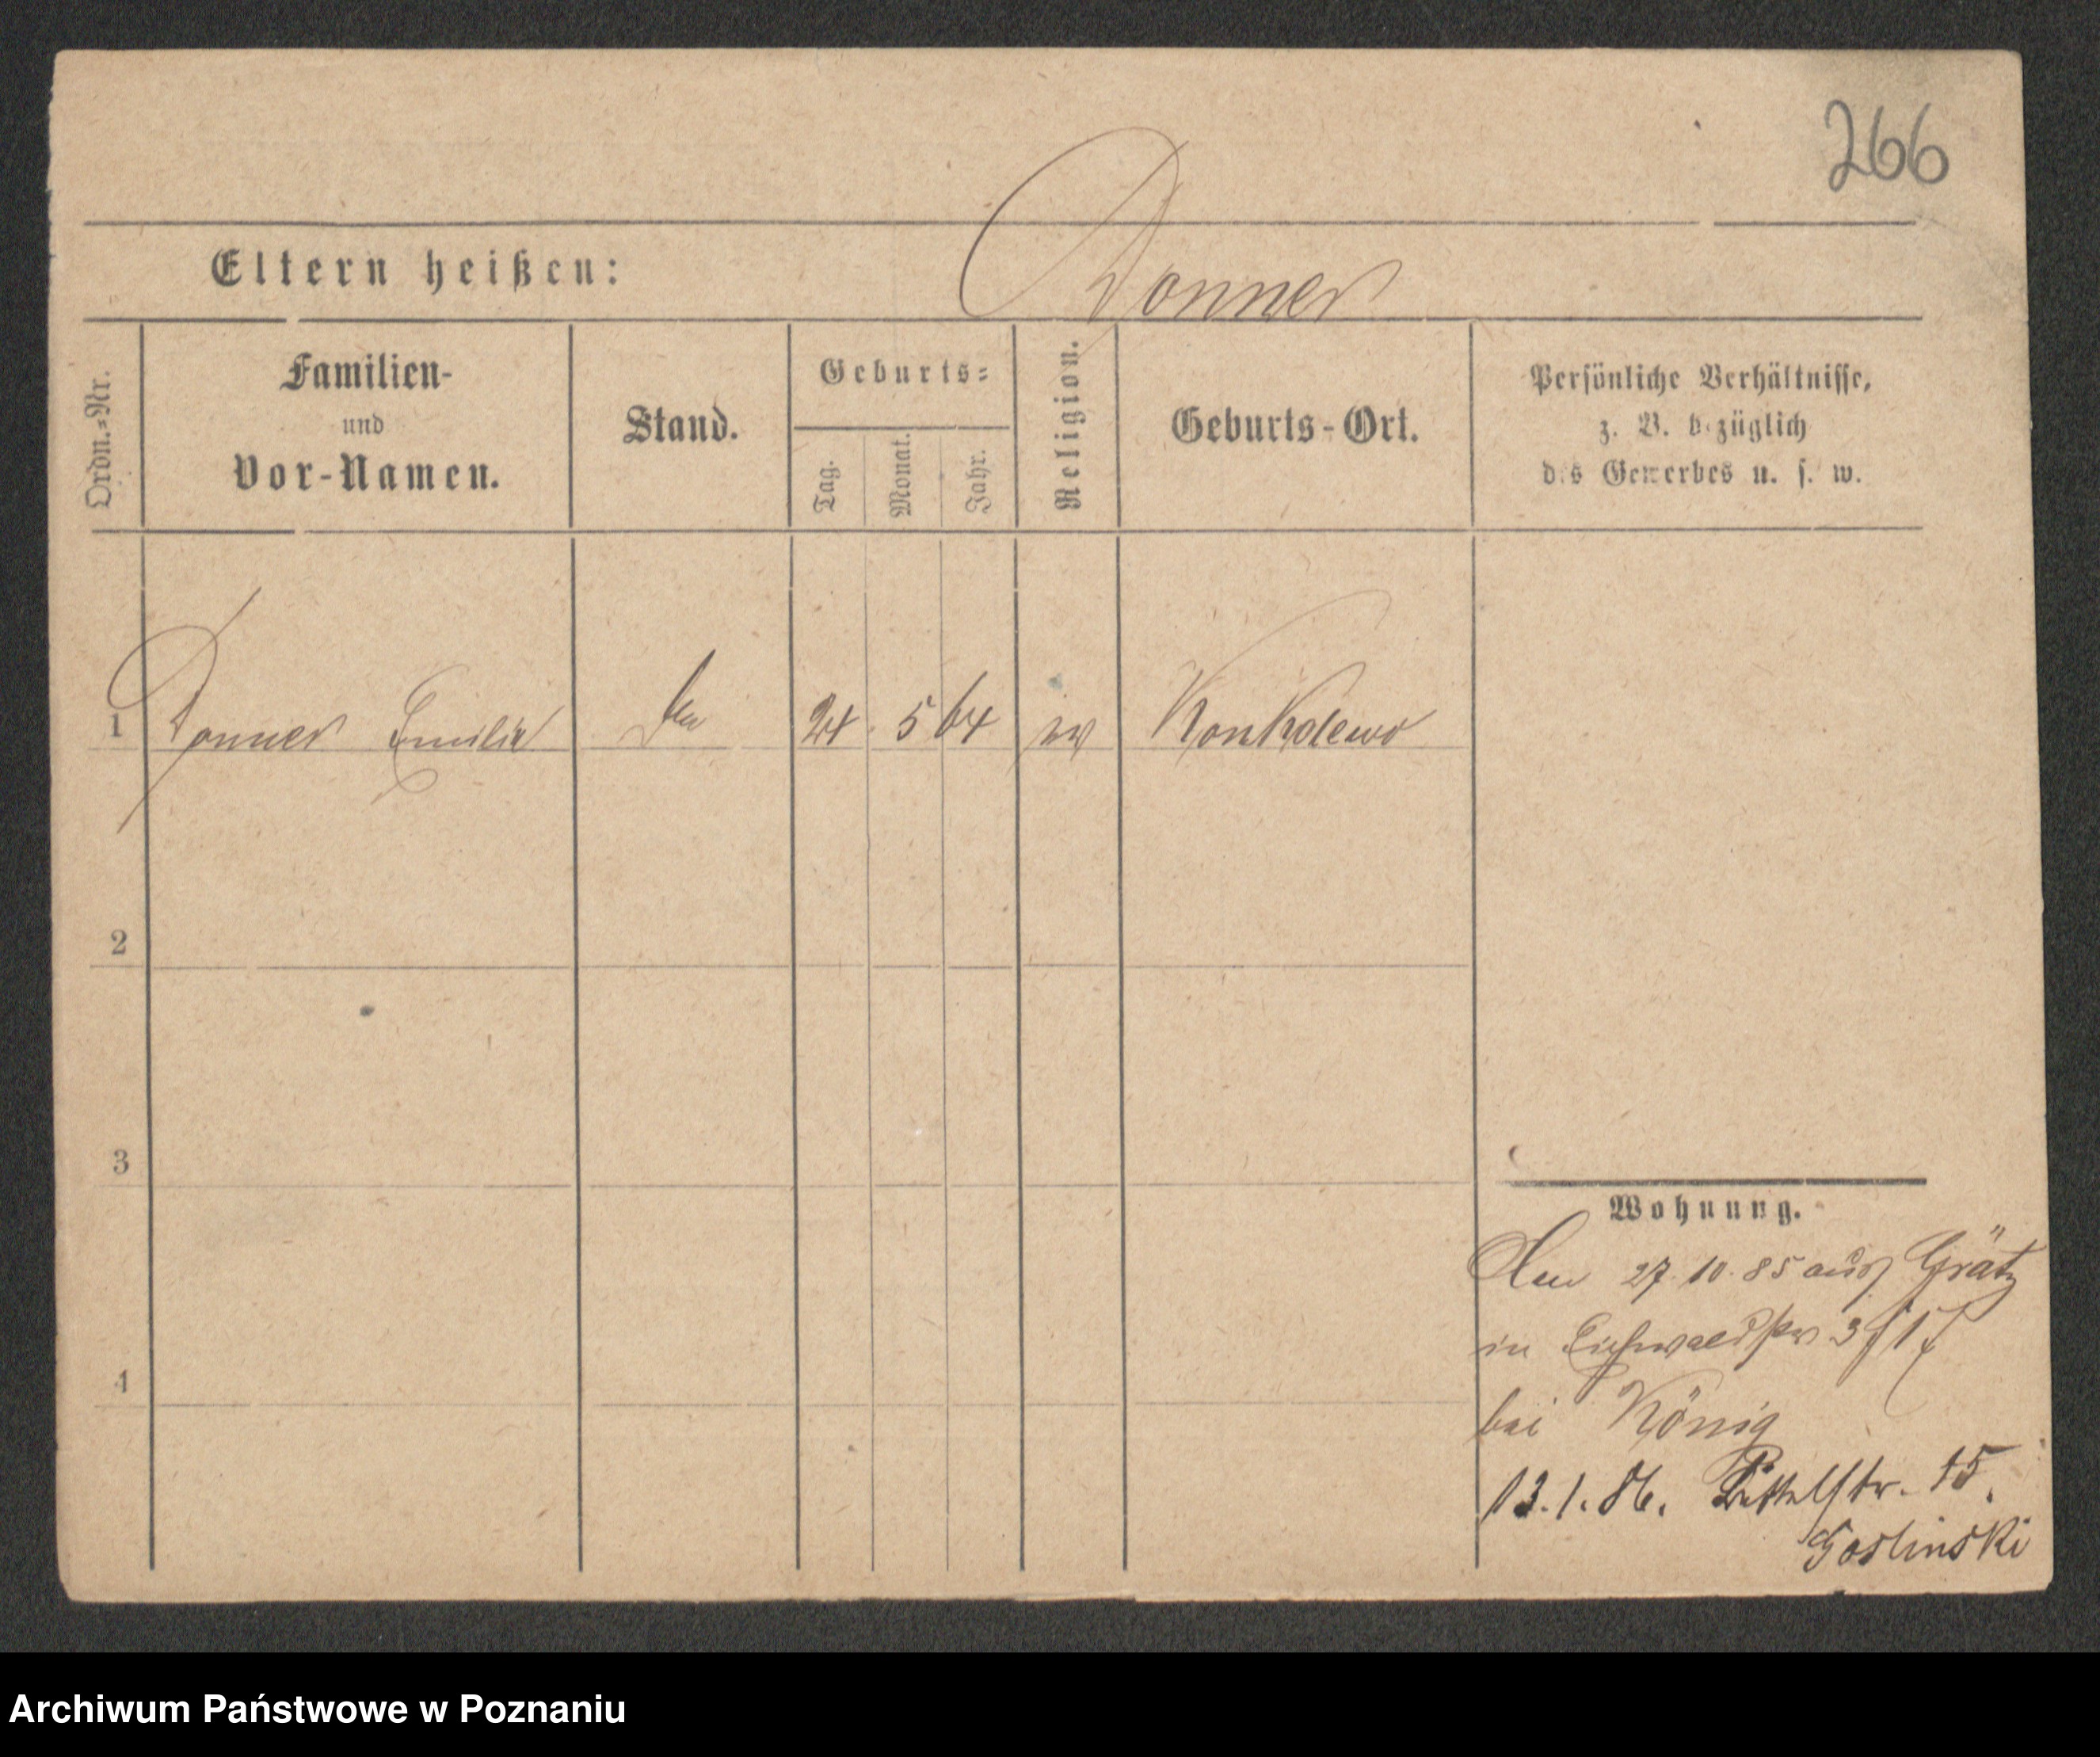 266
Eltern heißen: Donner
Ordn.-Nr.
Familien-
und
Vor-Namen.
Stand.
Geburts-
Tag.
Monat.
Jahr.
Religion.
Geburts-Ort.
Persönliche Verhältnisse,
z. B. bezüglich
des Gewerbes u. s. w.
1 Donner Emilie 24 5 64 Konkolewo
2
3
4
Wohnung.
Den 27.10.85 aus Grätz
in Eichwaldstr 3
bei König
13.1.86. 15.
Goslinski
Archiwum Państwowe w Poznaniu